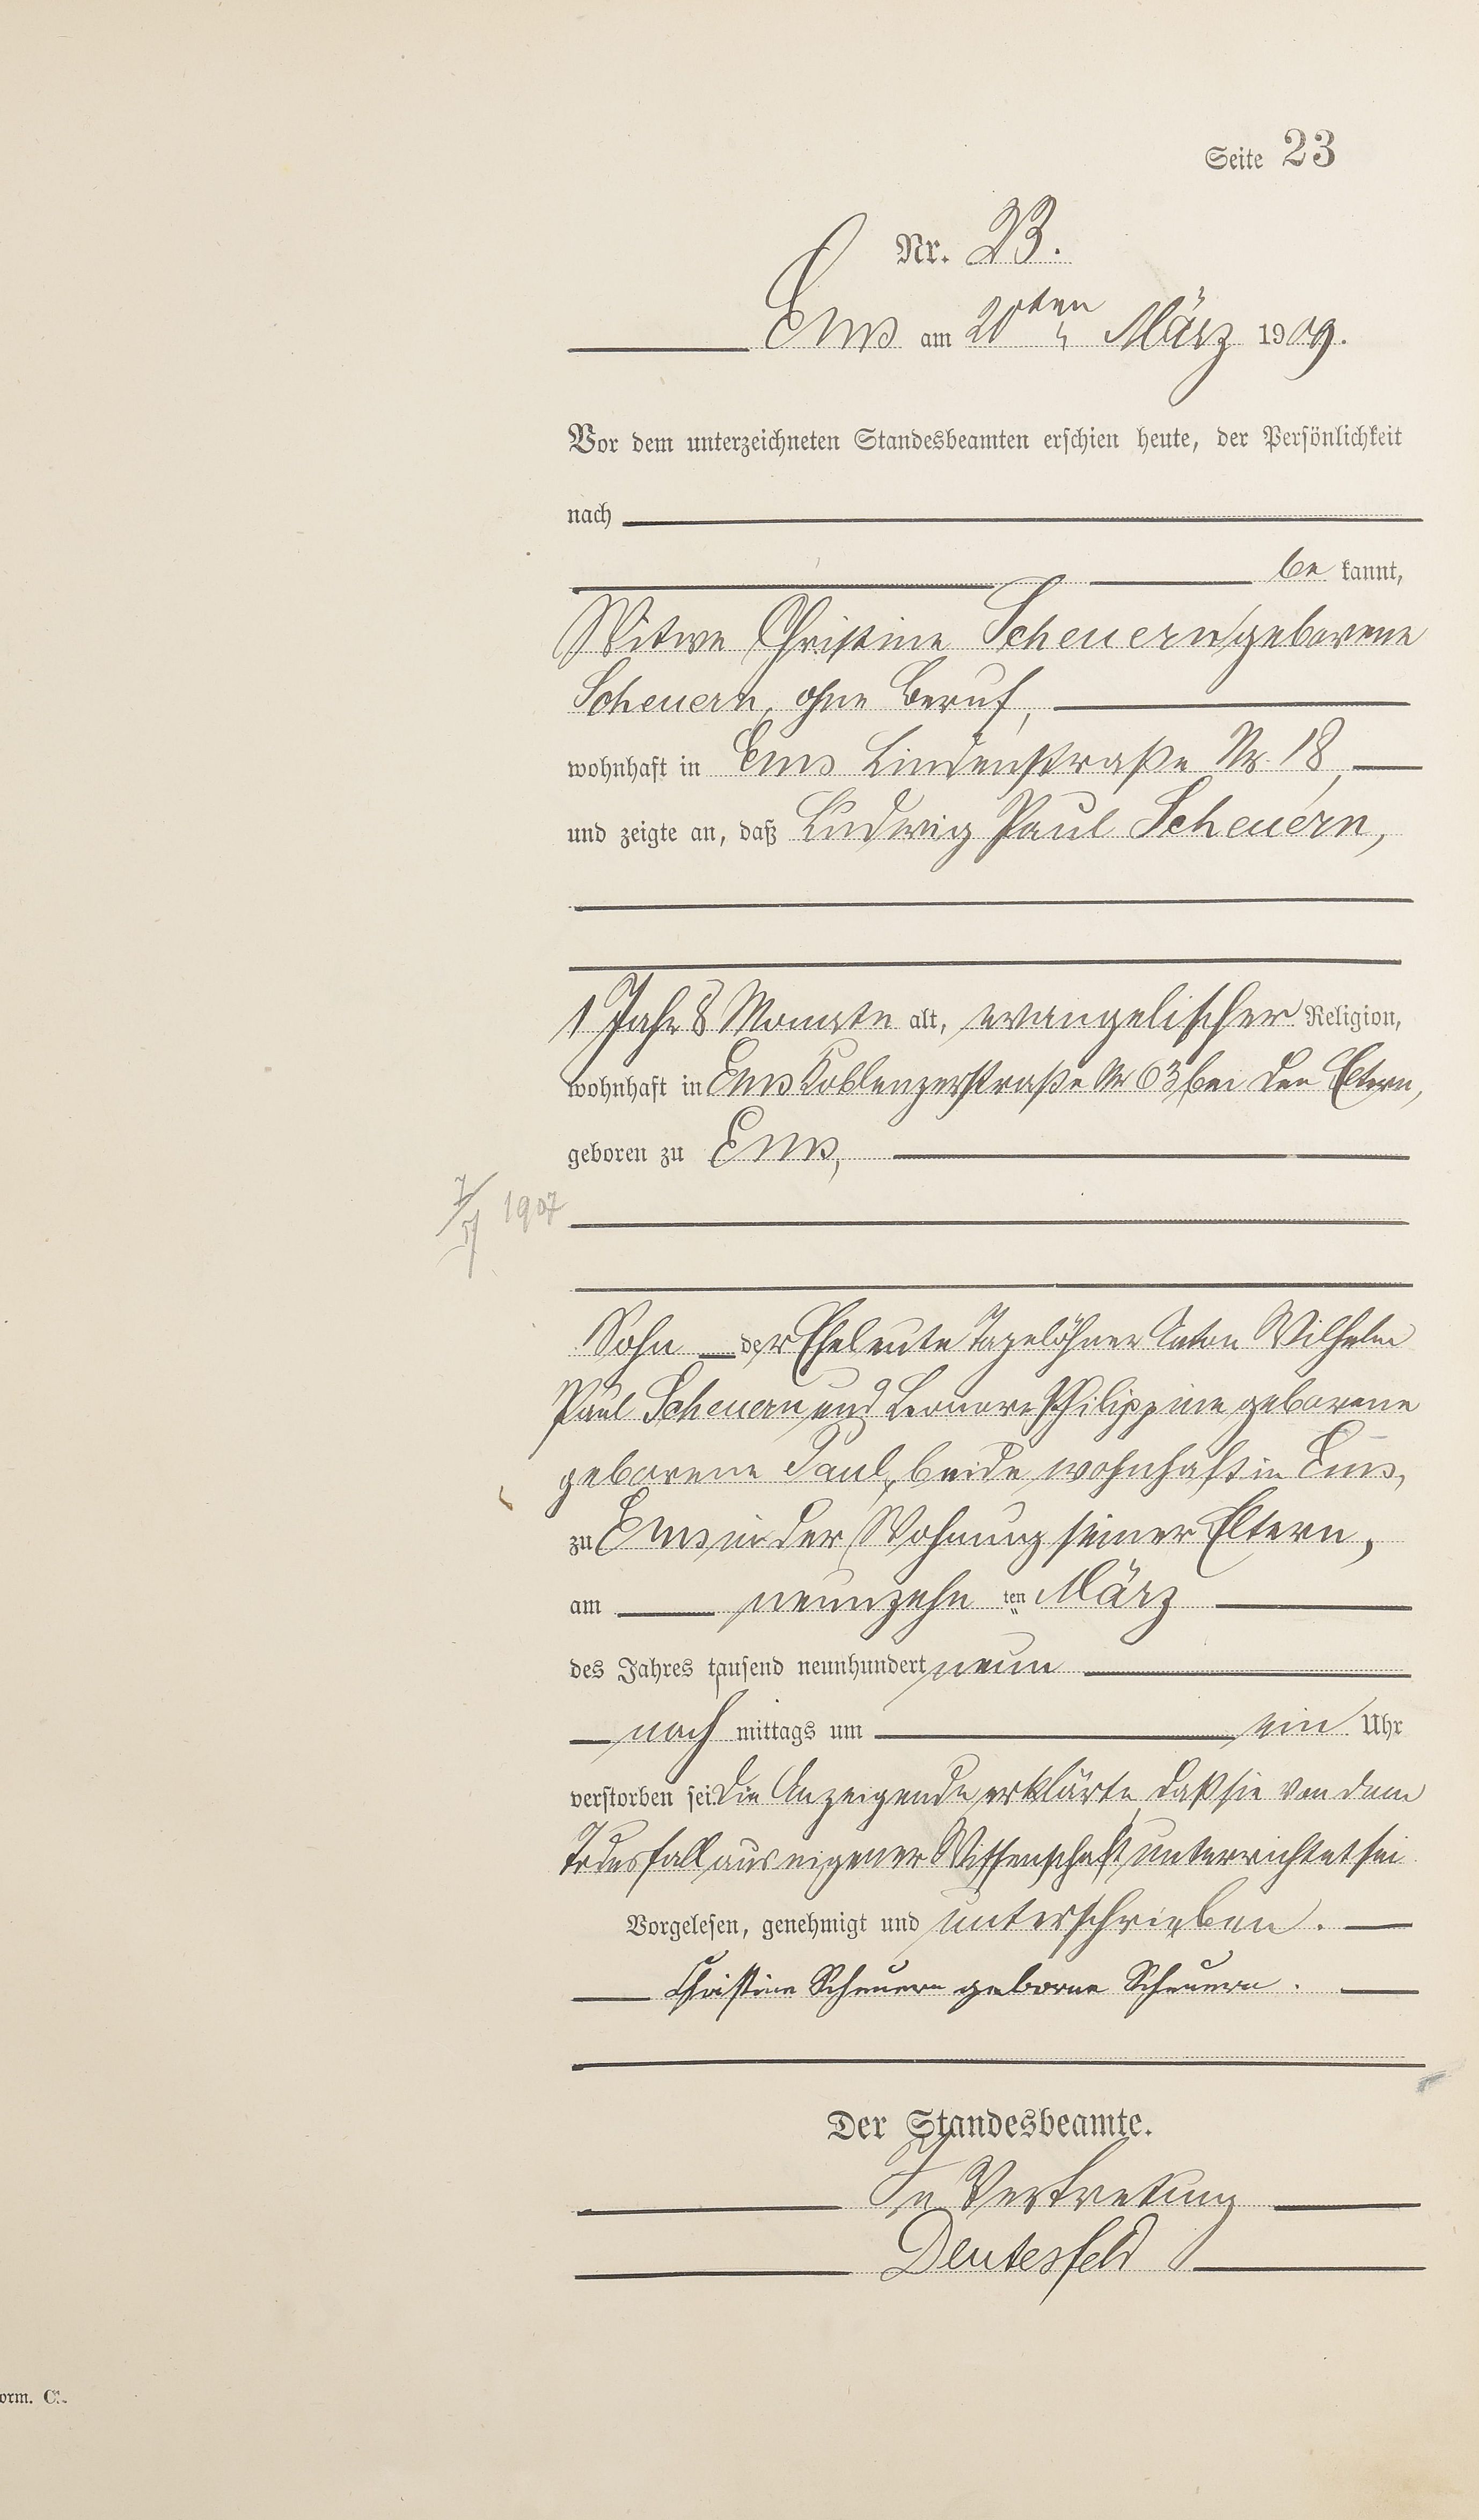 Seite 23
Nr. 23.
Ems am 20ten März 1909.
Vor dem unterzeichneten Standesbeamten erschien heute, der Persönlichkeit
nach
be kannt,
Witwe Christine Scheuern geborene
Scheuern, ohne Beruf,
wohnhaft in Ems Lindenstraße Nr. 18,
und zeigte an, daß Ludwig Paul Scheuern,
1 Jahr 8 Monate alt, evangelischer Religion,
wohnhaft in Ems Koblenzerstraße Nr 63 bei den Eltern,
geboren zu Ems,
1907
Sohn der Eheleute Tagelöhner Anton Wilhelm
Paul Scheuern und Leonore Philippine geborene
geborene Paul, beide wohnhaft in Ems,
zu Ems in der Wohnung seiner Eltern,
am neunzehn ten März
des Jahres tausend neunhundert neun
nach mittags um ein Uhr
verstorben sei. Die Anzeigende erklärte, daß sie von dem
Todesfall aus eigener Wissenschaft unterrichtet sei
Vorgelesen, genehmigt und unterschrieben.
Christine Scheuern geborne Scheuern.
Der Standesbeamte.
In Vertretung
Deutesfeld
orm. C.